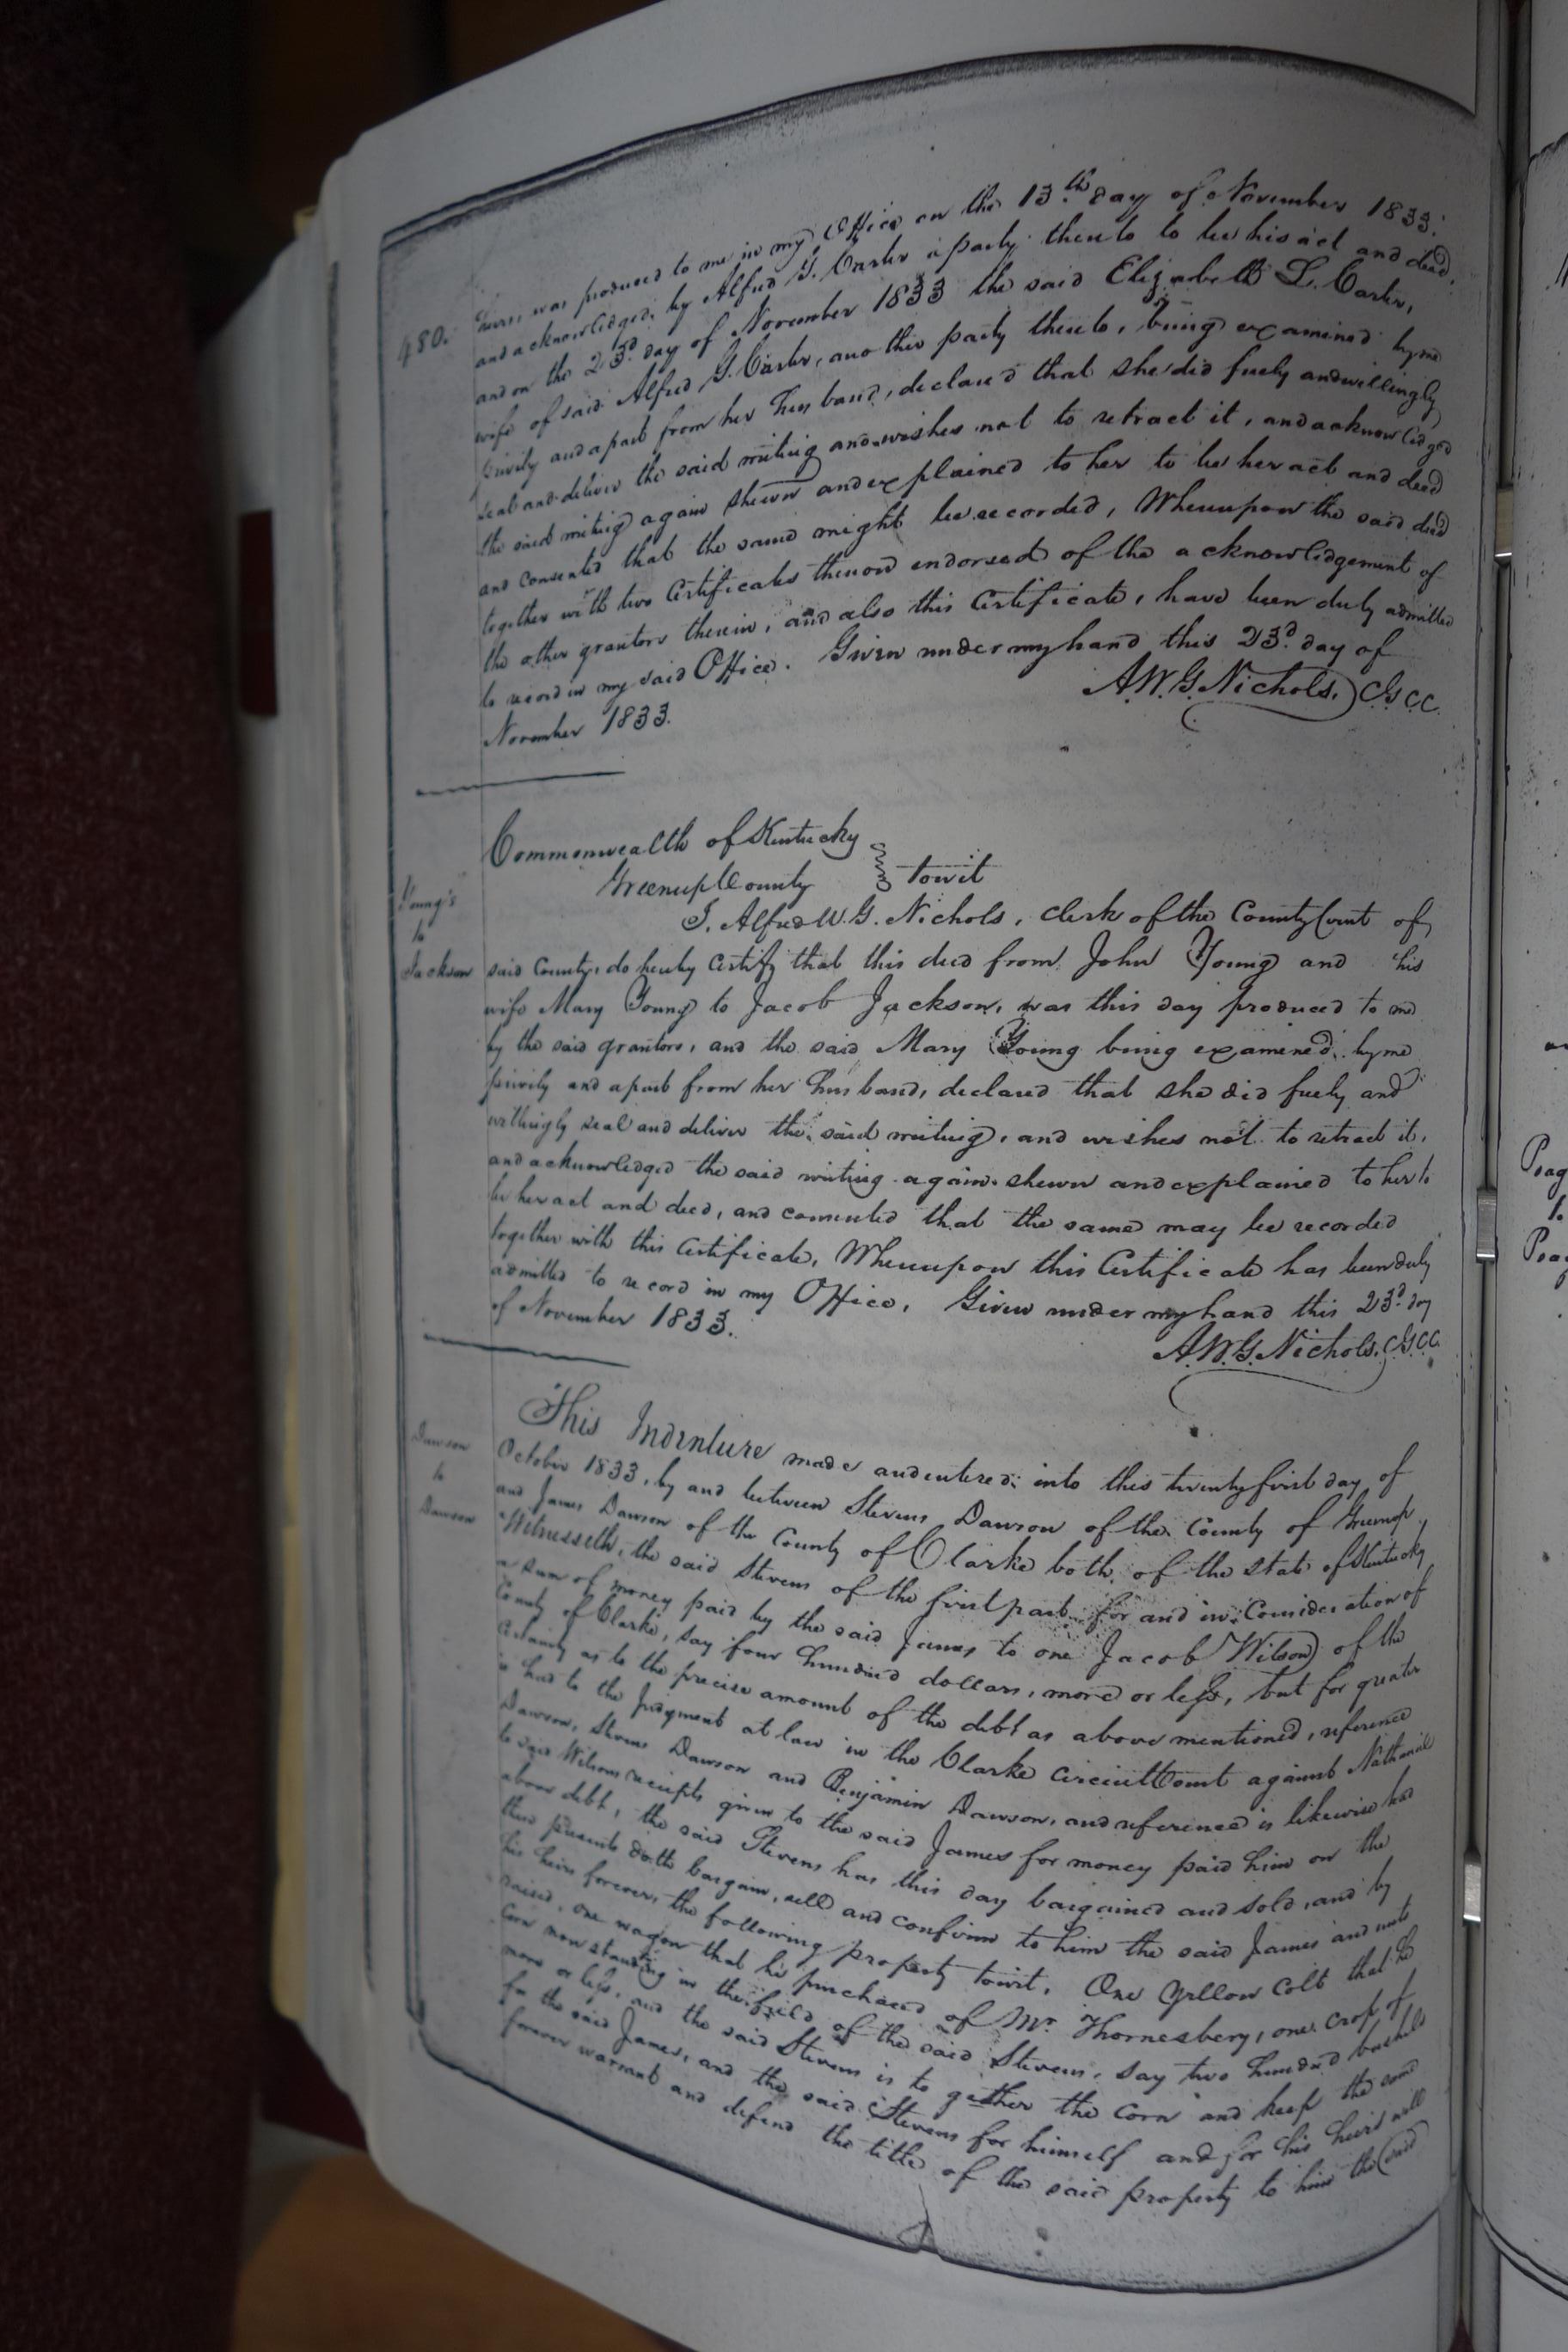 480.
heirs, was produced to me in my Office on the 13th day of November 1833.
and acknowledged by Alfred G. Carter a party thereto to be his act and deed,
and on the 23d day of November 1833 the said Elizabeth L. Carter,
wife of said Alfred G. Carter, another party thereto, being examined by me
privily and apart from her husband, declared that she did freely and willingly
seal and deliver the said writing and wishes not to retract it, and acknowledged
the said writing again shewn and explained to her to be her act and deed
and consented that the same might be recorded, Whereupon the said deed
together with two Certificates thereon endorsed of the acknowledgement of
the other grantors therein, and also this Certificate, have been duly admitted
to record in my said Office. Given under my hand this 23d day of
November 1833.
A.W.G. Nichols. C.G.C.C.
Commonwealth of Kentucky
Greenup County towit
Young's
to
Jackson
I. Alfred W. G. Nichols, Clerk of the County Court of
said County, do hereby Certify that this deed from John Young and his
wife Mary Young to Jacob Jackson, was this day produced to me
by the said grantors, and the said Mary Young being examined by me
privily and apart from her husband, declared that she did freely and
willingly seal and deliver the said writing, and wishes not to retract it,
and acknowledged the said writing again shewn and explained to her to
be her act and deed, and consented that the same may be recorded
together with this Certificate, Whereupon this Certificate has been duly
admitted to record in my Office, Given under my hand this 23d day
of November 1833.
A.W.G. Nichols. C.G.C.C.
Dawson
to
Dawson
This Indenture made and entered into this twenty first day of
October 1833, by and between Stevens Dawson of the County of Greenup,
and James Dawson of the County of Clarke both of the state of Kentucky
Witnesseth, the said Stevens of the first part for and in Consideration of
a sum of money paid by the said James to one Jacob Wilson of the
County of Clarke, say four hundred dollars, more or less, but for greater
Certainty as to the precise amount of the debt as above mentioned, reference
is had to the Judgment at law in the Clarke Circuit Court against Nathaniel
Dawson, Stevens Dawson and Benjamin Dawson, and reference is likewise had
to said Wilsons receipts given to the said James for money paid him on the
above debt, the said Stevens has this day bargained and sold, and by
these presents doth bargain, sell and confirm to him the said James and unto
his heirs forever, the following property towit, One yellow Colt that he
raised, one wagon that he purchased of Mr. Thornesbery, one crop of
Corn now standing in the field of the said Stevens, say two hundred bushels
more or less, and the said Stevens is to gather the corn and keep the same
for the said James, and the said Stevens for himself and for his heirs will
forever warrant and defend the title of the said property to him the said